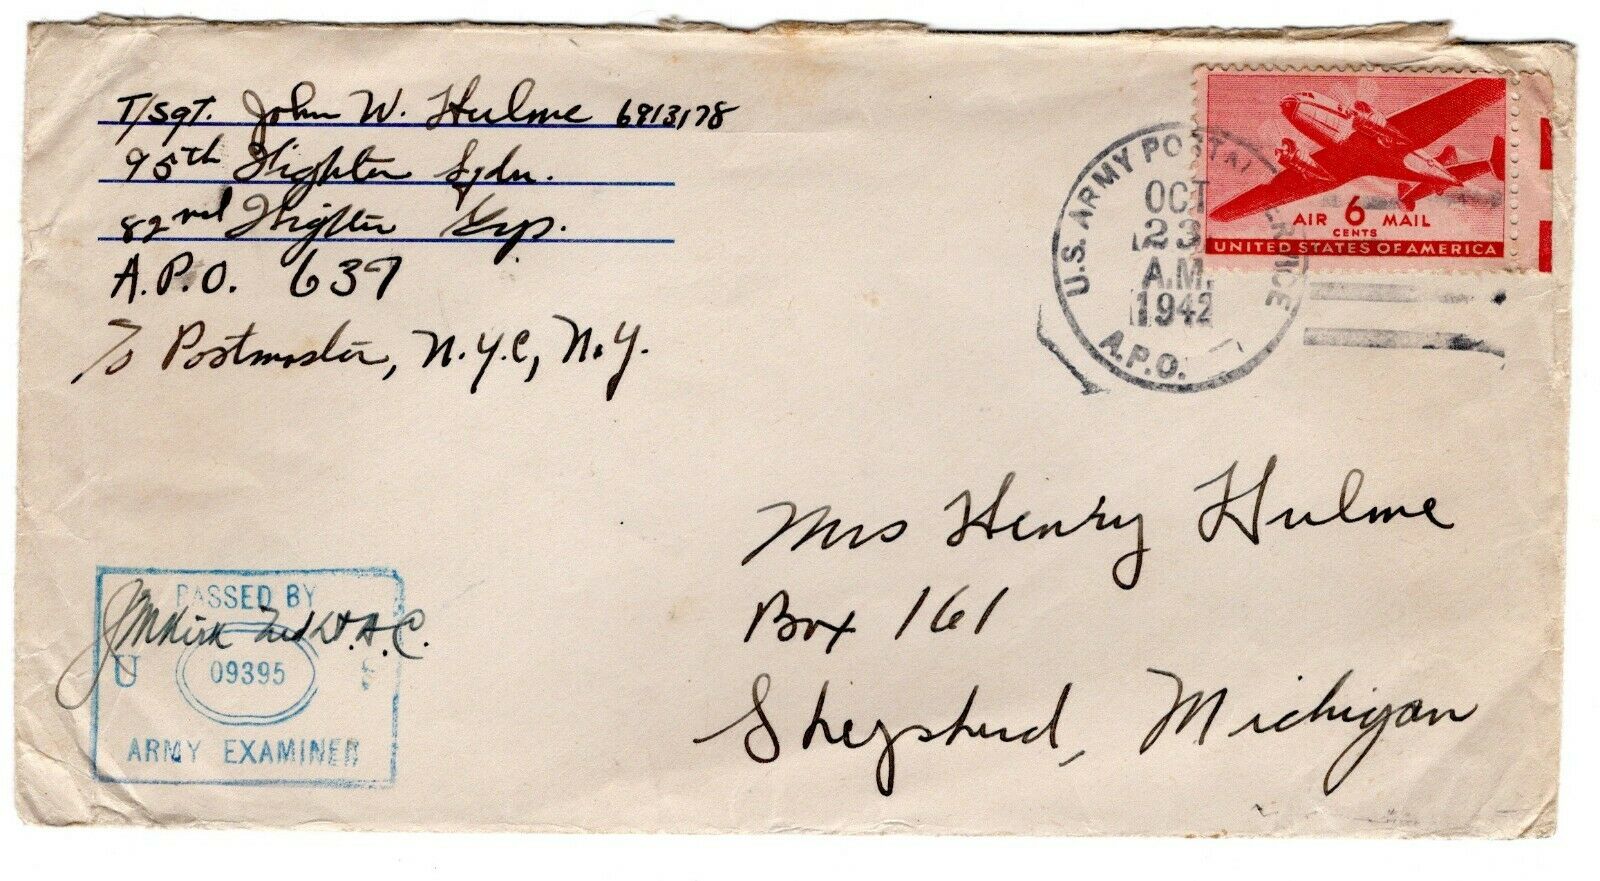 T/Sgt. John W. Hulme 6913178
95th Fighter Sqdn.
82nd Fighter Grp.
A.P.O. 637
℅ Postmaster, N.Y.C, N.Y.
U.S. ARMY POSTAL SERVICE
OCT
23
A.M.
1942
A.P.O.
AIR 6 MAIL
CENTS
UNITED STATES OF AMERICA
Mrs Henry Hulme
Box 161
Shepherd, Michigan
PASSED BY
U S
09395
ARMY EXAMINER